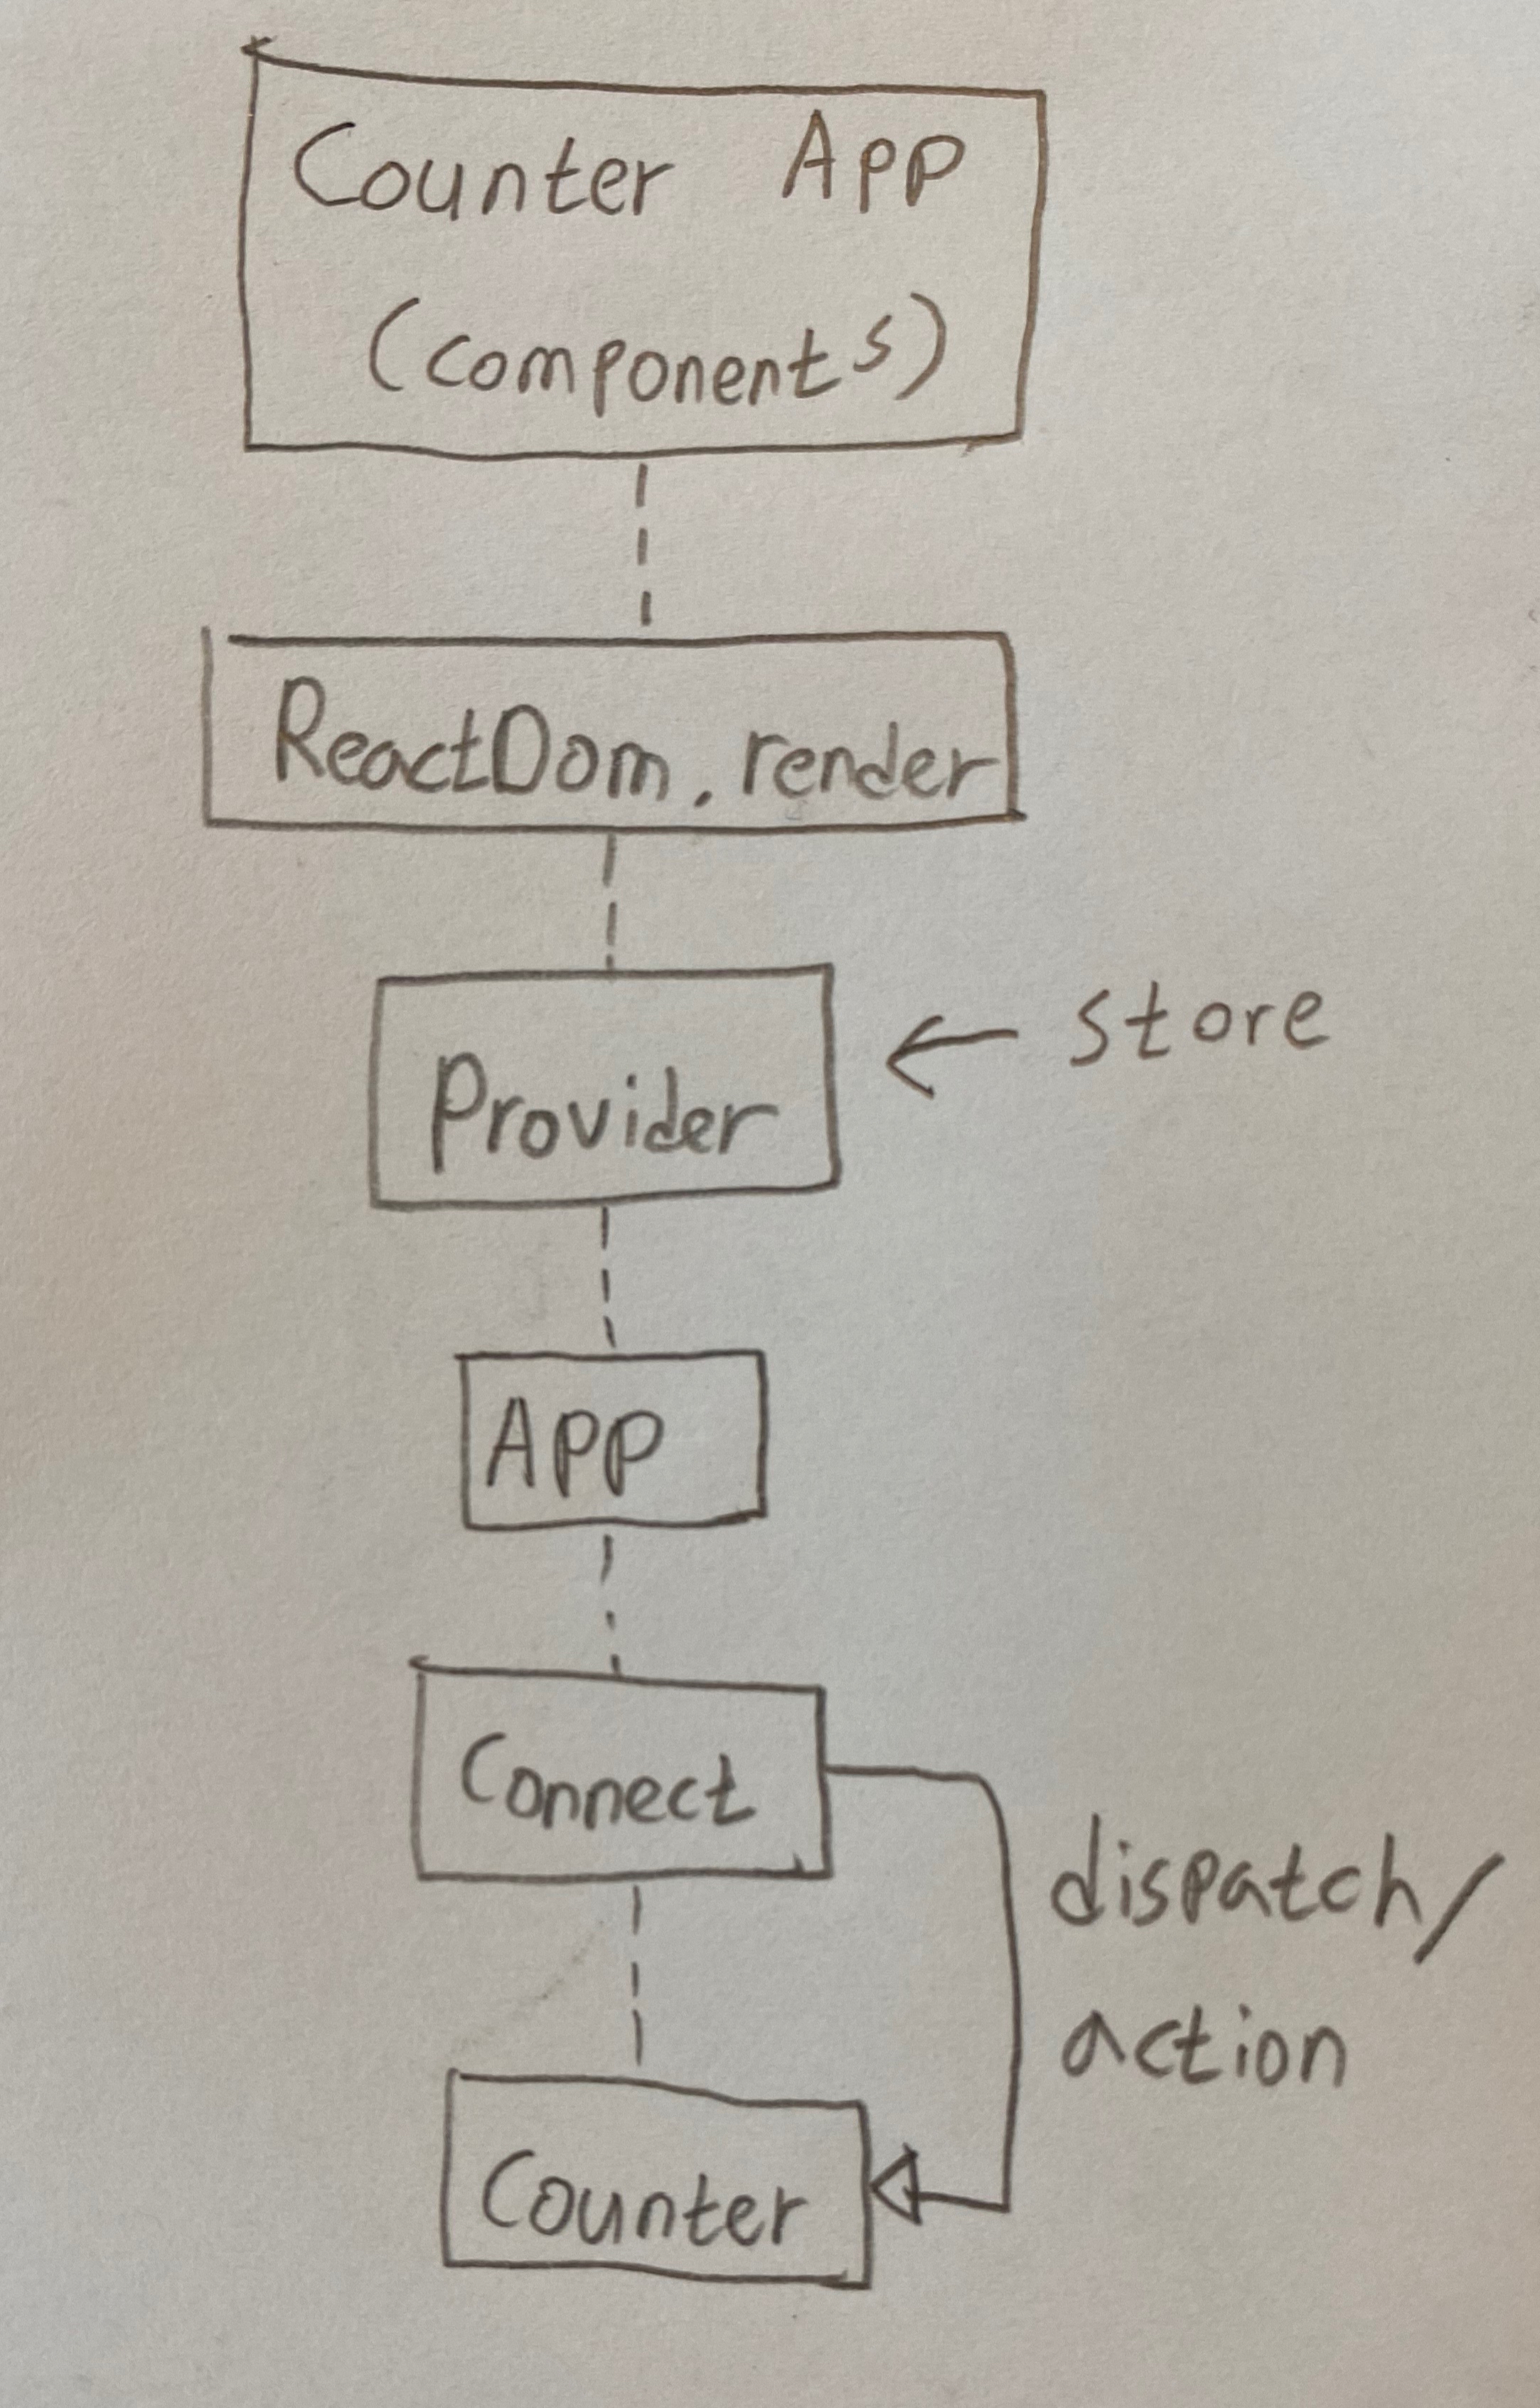 Counter App
(components)
ReactDom.render
Provider
store
App
Connect
dispatch/
action
Counter